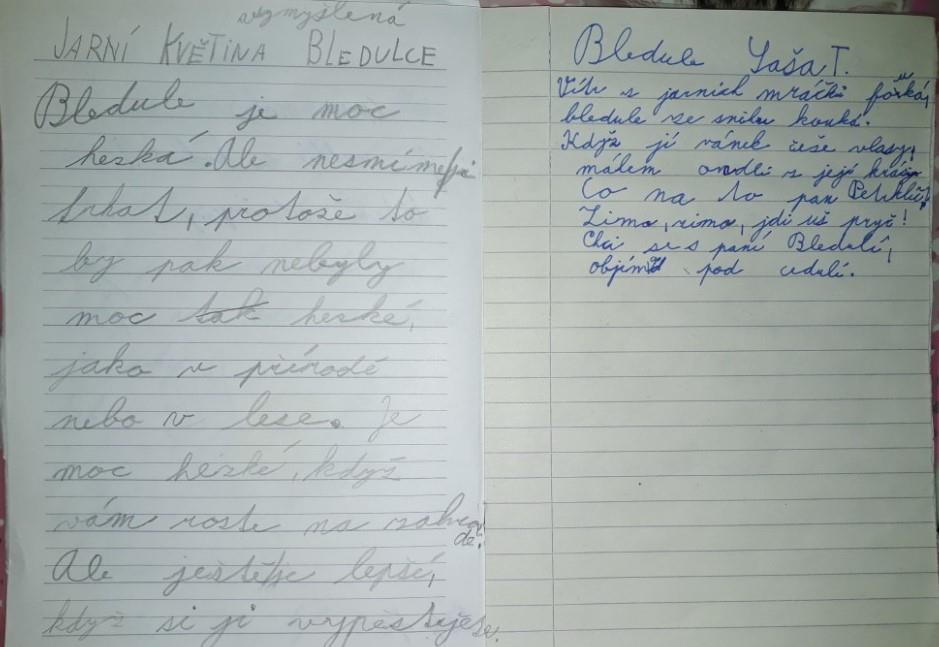 vymyšlená
JARNÍ KVĚTINA BLEDULCE
Bledule je moc
hezká. Ale nesmíme ji
trhat, protože to
by pak nebyly
moc tak hezké,
jako v přírodě
nebo v lese. Je
moc hezké, když
vám roste na zahra
dě.
Ale ještě je lepší,
když si ji vypěstujete.
Bledule Saša T.
Vítr s jarních mráčků fouká,
bledule ze sněhu kouká.
Když jí vánek češe vlasy,
málem omdlí z její krásy.
Co na to pan Petrklíč?
Zimo, zimo, jdi už pryč!
Chci se s paní Bledulí,
objímat pod cedulí.